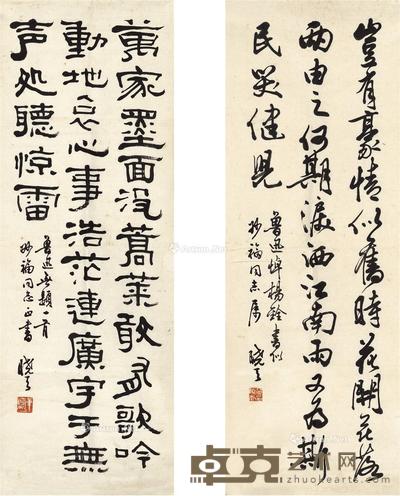 豈有豪情似舊時花開花落
兩由之何期淚洒江南雨又为斯
民哭健児
鲁迅悼楊銓書似
妙福同志属
萬家墨面沒蒿萊敢有歌吟
動地哀心事浩茫連廣宇于無
声処聽惊雷
鲁迅無題一首
妙福同志正書
卓克艺术网